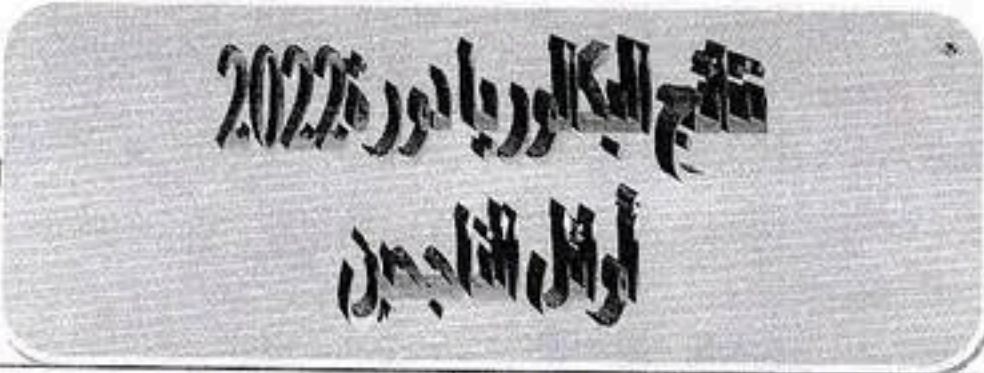 نتائج البكالوريا دورة 2022
أوائل الناجحين